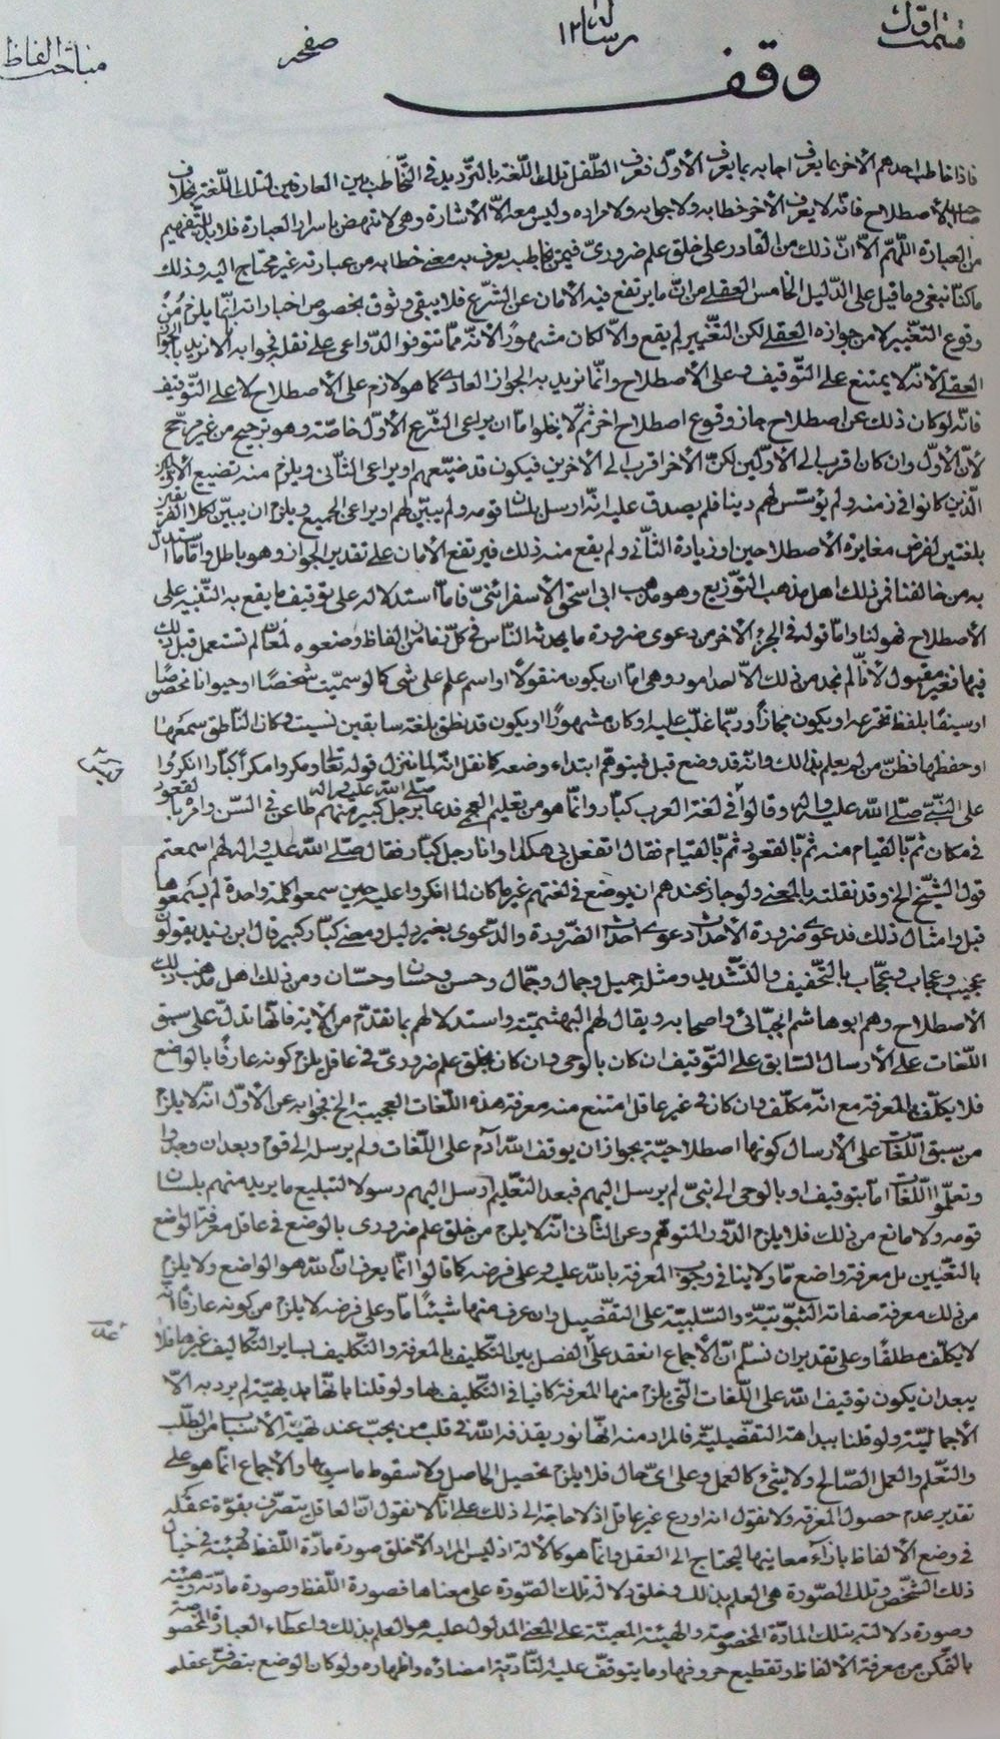 قسمت اول رساله ١٢ صفحه مباحث الفاظ
وقف
فاذا خاطب احدهم الأخر بما يعرف اجابه بما يعرف الأوّل فعرف الطّفل تلك اللّغة بالتّرديد فى التّخاطب بين العارفين لتلك اللّغة بخلاف
صاحب الأصطلاح فانّه لا يعرف الأخر خطابه ولا جوابه ولا مراده وليس معه الّا الأشارة وهى لا تنهض باسرار العبارة فلا بدّ للتّفهيم
من العبارة اللّهمّ الّا انّ ذلك من القادر على خلق علم ضرورىّ فيمن يخاطبه يعرف به معنى خطابه من عبارته غير محتاج اليه وذلك
ما كنّا نبغى وما قيل على الدّليل الخامس العقلى من انّه ما يرتفع فيه الأمان عن الشّرع فلا يبقى وثوق بخصوص اخباراته انّما يلزم من
وقوع التّغيير لا من جوازه العقلى لكن التّغيير لم يقع والّا لكان مشهورًا لأنّه ممّا تتوفر الدّواعى على نقله فجوابه لا نريد بالجواز
العقلى لأنّه لا يمتنع على التّوقيف وعلى الأصطلاح وانّما نريد به الجواز العادى كما هو لازم على الأصطلاح لا على التّوقيف
فانّه لو كان ذلك عن اصطلاح جاز وقوع اصطلاح اخر ثمّ لا يخلو امّا ان يراعى الشّرع الأوّل خاصّة وهو ترجيح من غير مرجّح
لأنّ الأوّل وان كان اقرب الى الأوّلين لكنّ الأخر اقرب الى الأخرين فيكون قد ضيّعهم او يراعى الثّانى ويلزم منه تضييع الأوّلين
الّذين كانوا فى زمنه ولم يؤسّس لهم دينا فلم يصدق عليه انّه ارسل بلسان قومه ولم يبيّن لهم او يراعى الجميع ويلزم ان يبيّن لكلا الفريقين
بلغتين لفرض مغايرة الأصطلاحين او زيادة الثّانى ولم يقع منه ذلك فيرتفع الأمان على تقدير الجواز وهو باطل وامّا ما استدلّ
به من خالفنا فمن ذلك اهل مذهب التّوزيع وهو مذهب ابى اسحق الأسفرائنى فامّا استدلاله على توقيف ما يقع به التّنبيه على
الأصطلاح فهو لنا وامّا قوله فى الجزء الأخر من دعوى ضرورة ما يحدثه النّاس فى كلّ زمان من الفاظ وضعوه لمعان لم تستعمل قبل ذلك
فيها فغير مقبول لأنّا لم نجد من ذلك الّا احد امور وهى امّا ان يكون منقولا او اسم علم على شئ كما لو سميّت شخصًا او حيوانا مخصوصًا
او سيفًا بلفظ تخترعه او يكون مجازًا وربّما غلّب عليه او كان مشهورًا او يكون قد نطق بلغة سابقين نسيت وكان النّاطق سمعها
او حفظها فظنّ من لم يعلم بذلك وانّه قد وضع قبل فيتوهّم ابتداء وضعه كما نقل انّه لمّا نزل قوله تعالى ومكروا مكرًا كبّارا انكروا
على النّبىّ صلّى اللّه عليه واله وقالوا ما فى لغة العرب كبّار وانّما هو من تعليم العجم فدعا صلّى اللّه عليه واله برجل كبير منهم طاعن فى السّن وامره بالقعود
فى مكان ثمّ بالقيام منه ثمّ بالقعود ثمّ بالقيام فقال اتفعل بى هكذا وانا رجل كبّار فقال صلّى اللّه عليه واله لهم اسمعتم
قول الشّيخ الخ وقد نقلته بالمعنى ولو جاز عندهم ان يوضع فى لغتهم غير ما كان لما انكروا عليه حين سمعوا كلمة واحدة لم يسمعوها
قبل وامثال ذلك فدعوى ضرورة الأحداث دعوى احداث الضّرورة والدّعوى بغير دليل ومعنى كبّار كبير قال ابن زيد يقولون
عجيب وعجاب وعجّاب بالتّخفيف والتّشديد ومثله جميل وجمال وجمّال وحسن وحسان وحسّان ومن ذلك اهل مذهب
الأصطلاح وهم ابو هاشم الجبّائى واصحابه ويقال لهم البهشميّة واستدلالهم بما تقدّم من الأية فانّها تدلّ على سبق
اللّغات على الأرسال السّابق على التّوقيف ان كان بالوحى وان كان بخلق علم ضرورىّ فى عاقل يلزم كونه عارفًا بالواضع
فلا يكلّف بالمعرفة مع انّه مكلّف وان كان فى غير عاقل امتنع منه معرفة هذه اللّغات العجيبة الخ فجوابه عن الأوّل انّه لا يلزم
من سبق اللّغات على الأرسال كونها اصطلاحيّة بجواز ان يوقف اللّه آدم على اللّغات ولم يرسله الى قوم وبعد ان وجدوا
وتعلّموا اللّغات امّا بتوقيف او بالوحى الى نبىّ لم يرسل اليهم فبعد التّعليم ارسل اليهم رسولا لتبليغ ما يريد منهم بلسان
قومه ولا مانع من ذلك فلا يلزم الدّور المتوهّم وعن الثّانى انّه لا يلزم من خلق علم ضرورى بالوضع فى عاقل معرفة الواضع
بالتّعيين بل معرفة واضع مّا ولا ينافى وجوب المعرفة باللّه عليه وعلى فرضه كما قالوا انّما يعرف انّ اللّه هو الواضع ولا يلزم
من ذلك معرفة صفاته الثّبوتيّة والسّلبيّة على التفضّيل وان عرف منها شيئًا مّا وعلى فرضه لا يلزم من كونه عارفًا انّه
لا يكلّف مطلقًا وعلى تقدير ان نسلّم انّ الأجماع انعقد على الفصل بين التّكليف بالمعرفة والتّكليف بساير التّكاليف غيرها فلا
يبعد ان يكون توقيف اللّه على اللّغات الّتى يلزم منها المعرفة كافيا فى التّكليف بها ولو قلنا بانّها بديهيّة لم يرد به الّا
الأجماليّة ولو قلنا ببداهة التفصّيليّة فالمراد منه انّها نور يقذفه اللّه فى قلب من يحبّ عند تهيّئة الأسباب من الطّلب
والتّعلّم والعمل الصّالح ولا شئ كالعمل وعلى اىّ حال فلا يلزم تحصيل الحاصل ولا سقوط ما سويها والأجماع انّما هو على
تقدير عدم حصول المعرفة ولا نقول انّه اودع غير عاقل اذ لا حاجة الى ذلك على انّا لا نقول انّ العاقل يتصرّف بقوّة عقله
فى وضع الألفاظ بازآء معانيها ليحتاج الى العقل وانّما هو كالألة اذ ليس المراد الّا خلق صورة مادّة اللّفظ وهيئته فى خيال
ذلك الشّخص وتلك الصّورة هى العلم بذلك وخلق دلالة تلك الصّورة على معناها فصورة اللّفظ وصورة مادّته وهيئته
وصورة دلالته بتلك المادّة المخصوصة والهيئة المعيّنة على المعنى المدلول عليه هو العلم بذلك واعطاء العبارة المخصوصة
بالتّمكّن من معرفة الألفاظ وتقطيع حروفها وما يتوقّف عليه التّأدية امضاؤه واظهاره ولو كان الوضع بتصرّف عقله